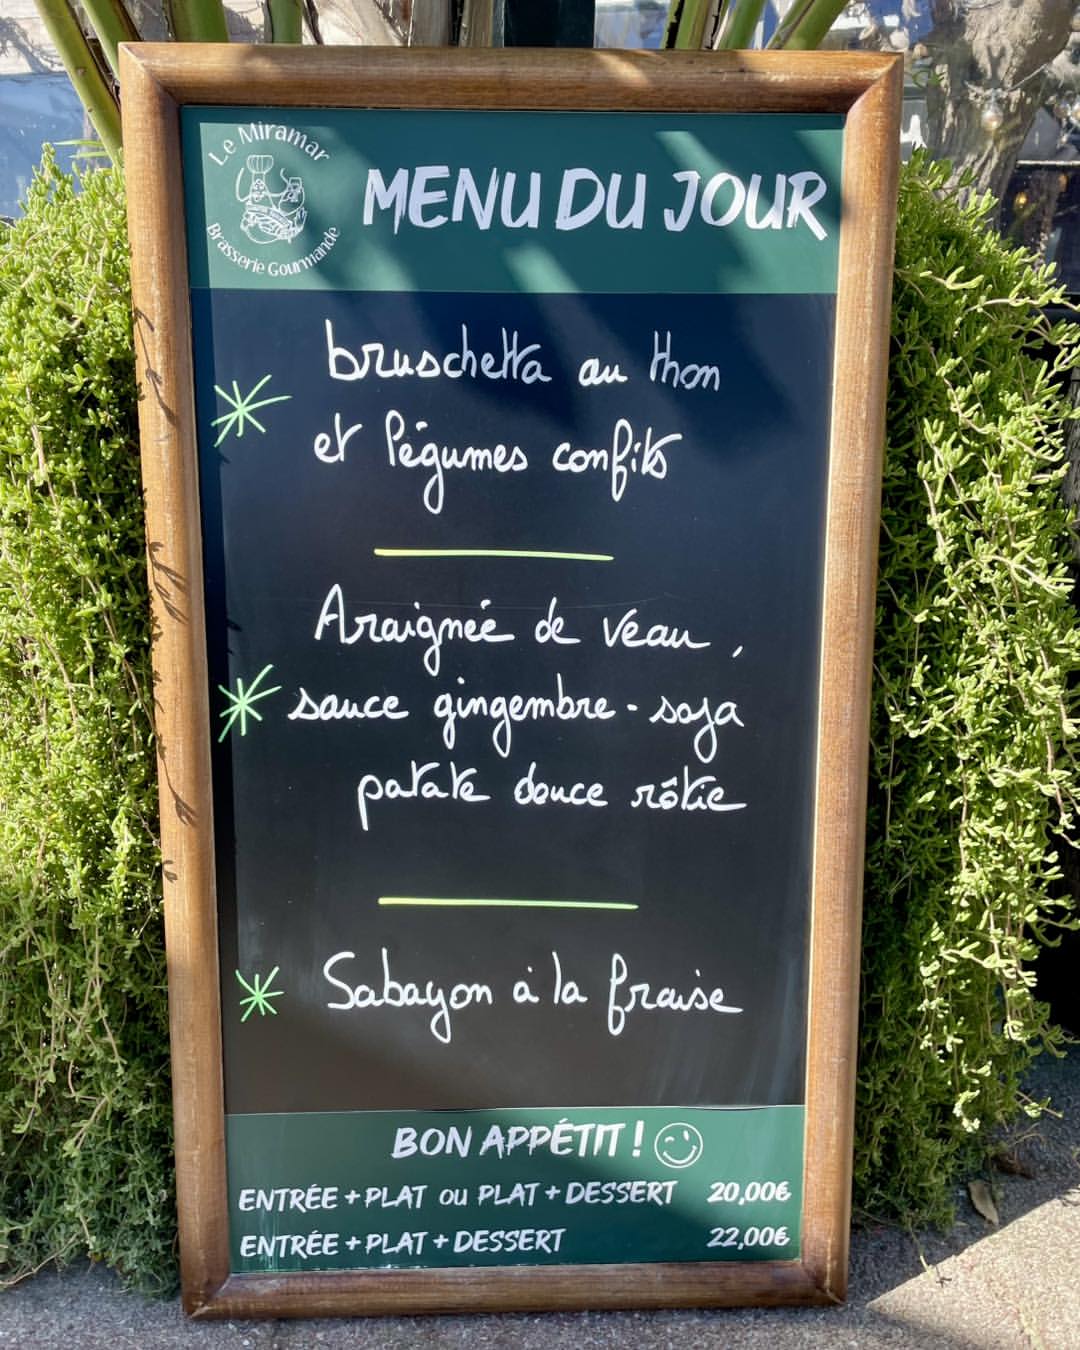 Le Miramar
Brasserie Gourmande
MENU DU JOUR
bruschetta au thon
et légumes confits
Araignée de veau,
sauce gingembre - soja
patate douce rôtie
Sabayon à la fraise
BON APPÉTIT !
ENTRÉE + PLAT OU PLAT + DESSERT 20,00€
ENTRÉE + PLAT + DESSERT 22,00€